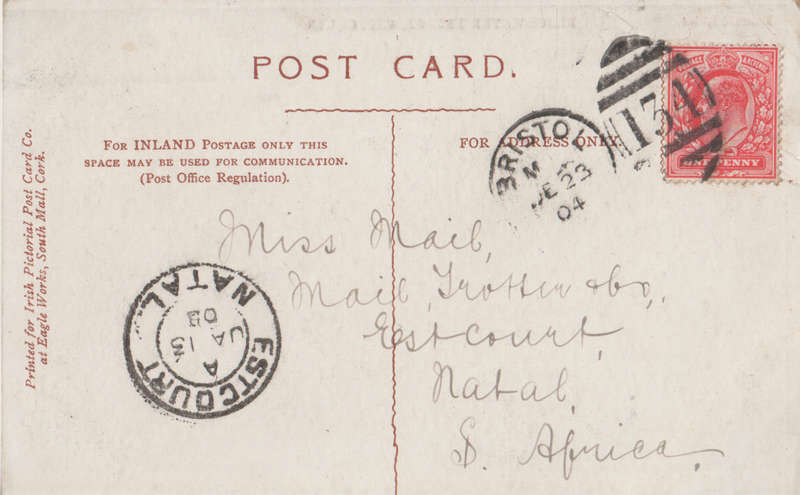 POST CARD.
FOR INLAND POSTAGE ONLY THIS
SPACE MAY BE USED FOR COMMUNICATION.
(Post Office Regulation).
FOR ADDRESS ONLY.
Printed for Irish Pictorial Post Card Co.
at Eagle Works, South Mall, Cork.
BRISTOL
M
DE 23
04
134
POSTAGE REVENUE
ONE PENNY
Miss Mail,
Mail, Trotter & Co.,
Estcourt,
Natal,
S. Africa.
ESTCOURT
A
13
JA
05
NATAL